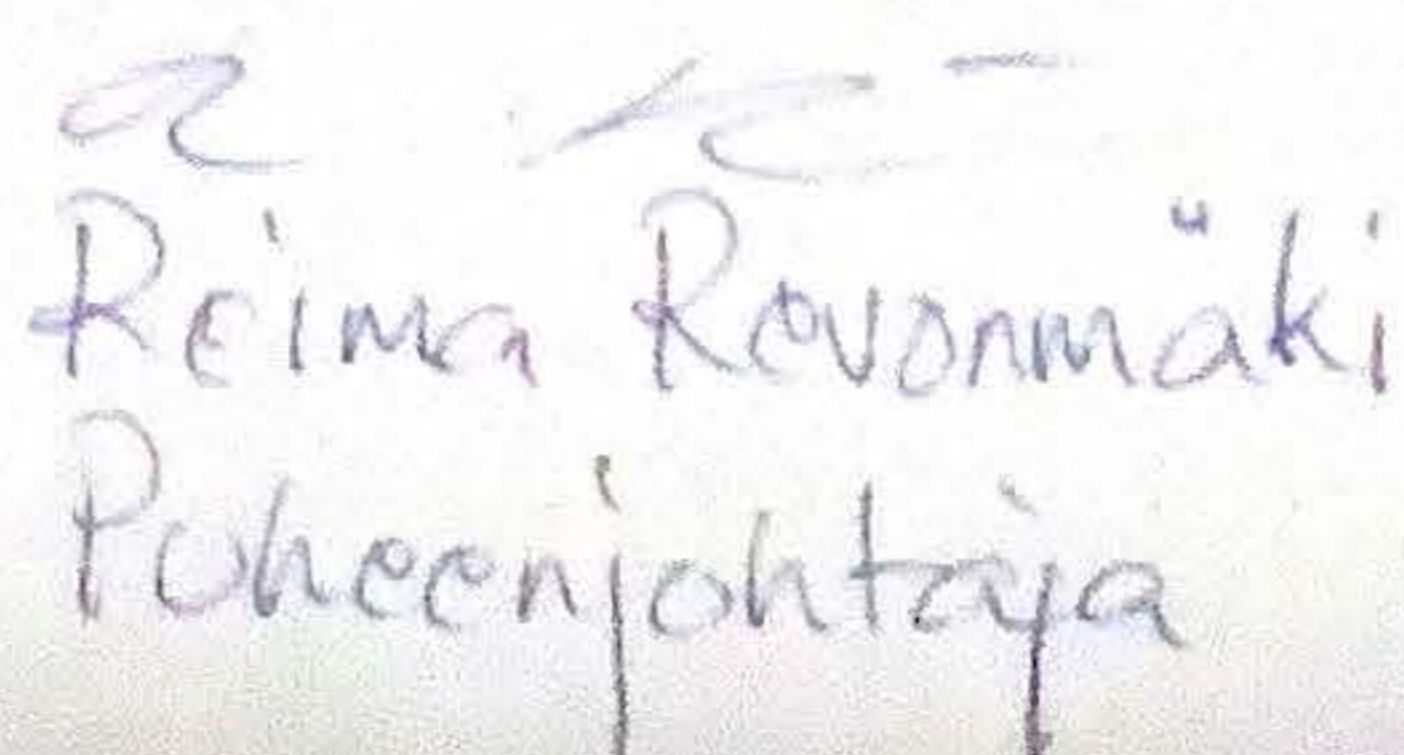 Reima Rovonmäki
Poheenjohtaja